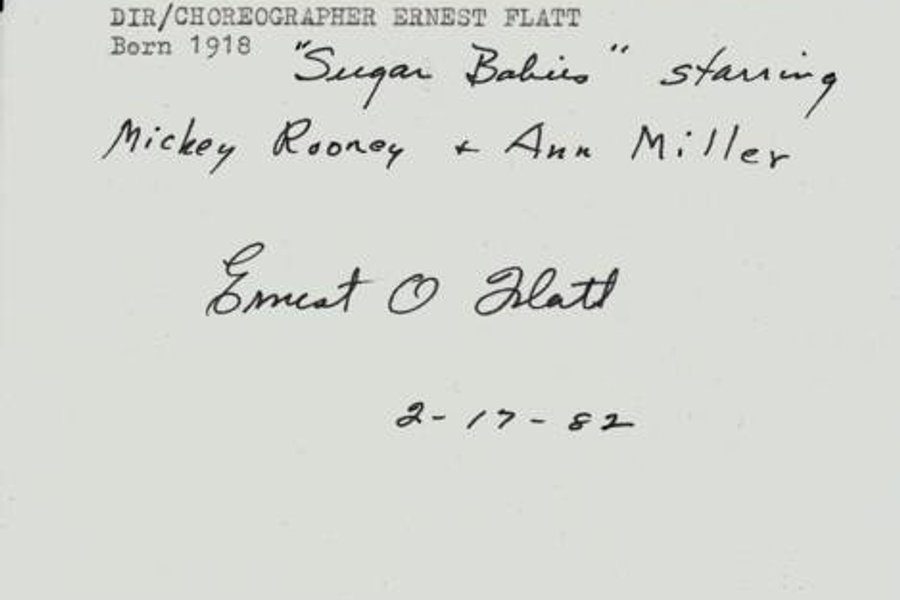 DIR/CHOREOGRAPHER ERNEST FLATT
Born 1918
"Sugar Babies" starring
Mickey Rooney + Ann Miller
Ernest O Flatt
2-17-82